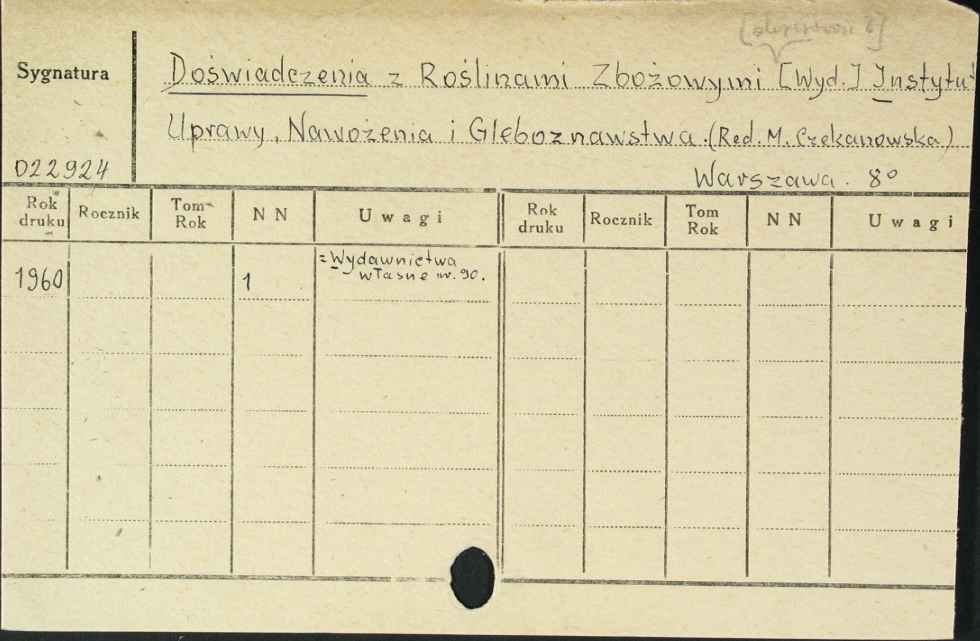 Sygnatura
Doświadczenia z Roślinami Zbożowymi [Wyd.] Instytu
Uprawy, Nawożenia i Gleboznawstwa. (Red. M. Czekanowska)
D22924
Warszawa. 8°
Rok druku Rocznik Tom Rok N N Uwagi Rok druku Rocznik Tom Rok N N Uwagi
1960 1 = Wydawnictwa
własne nr. 90.